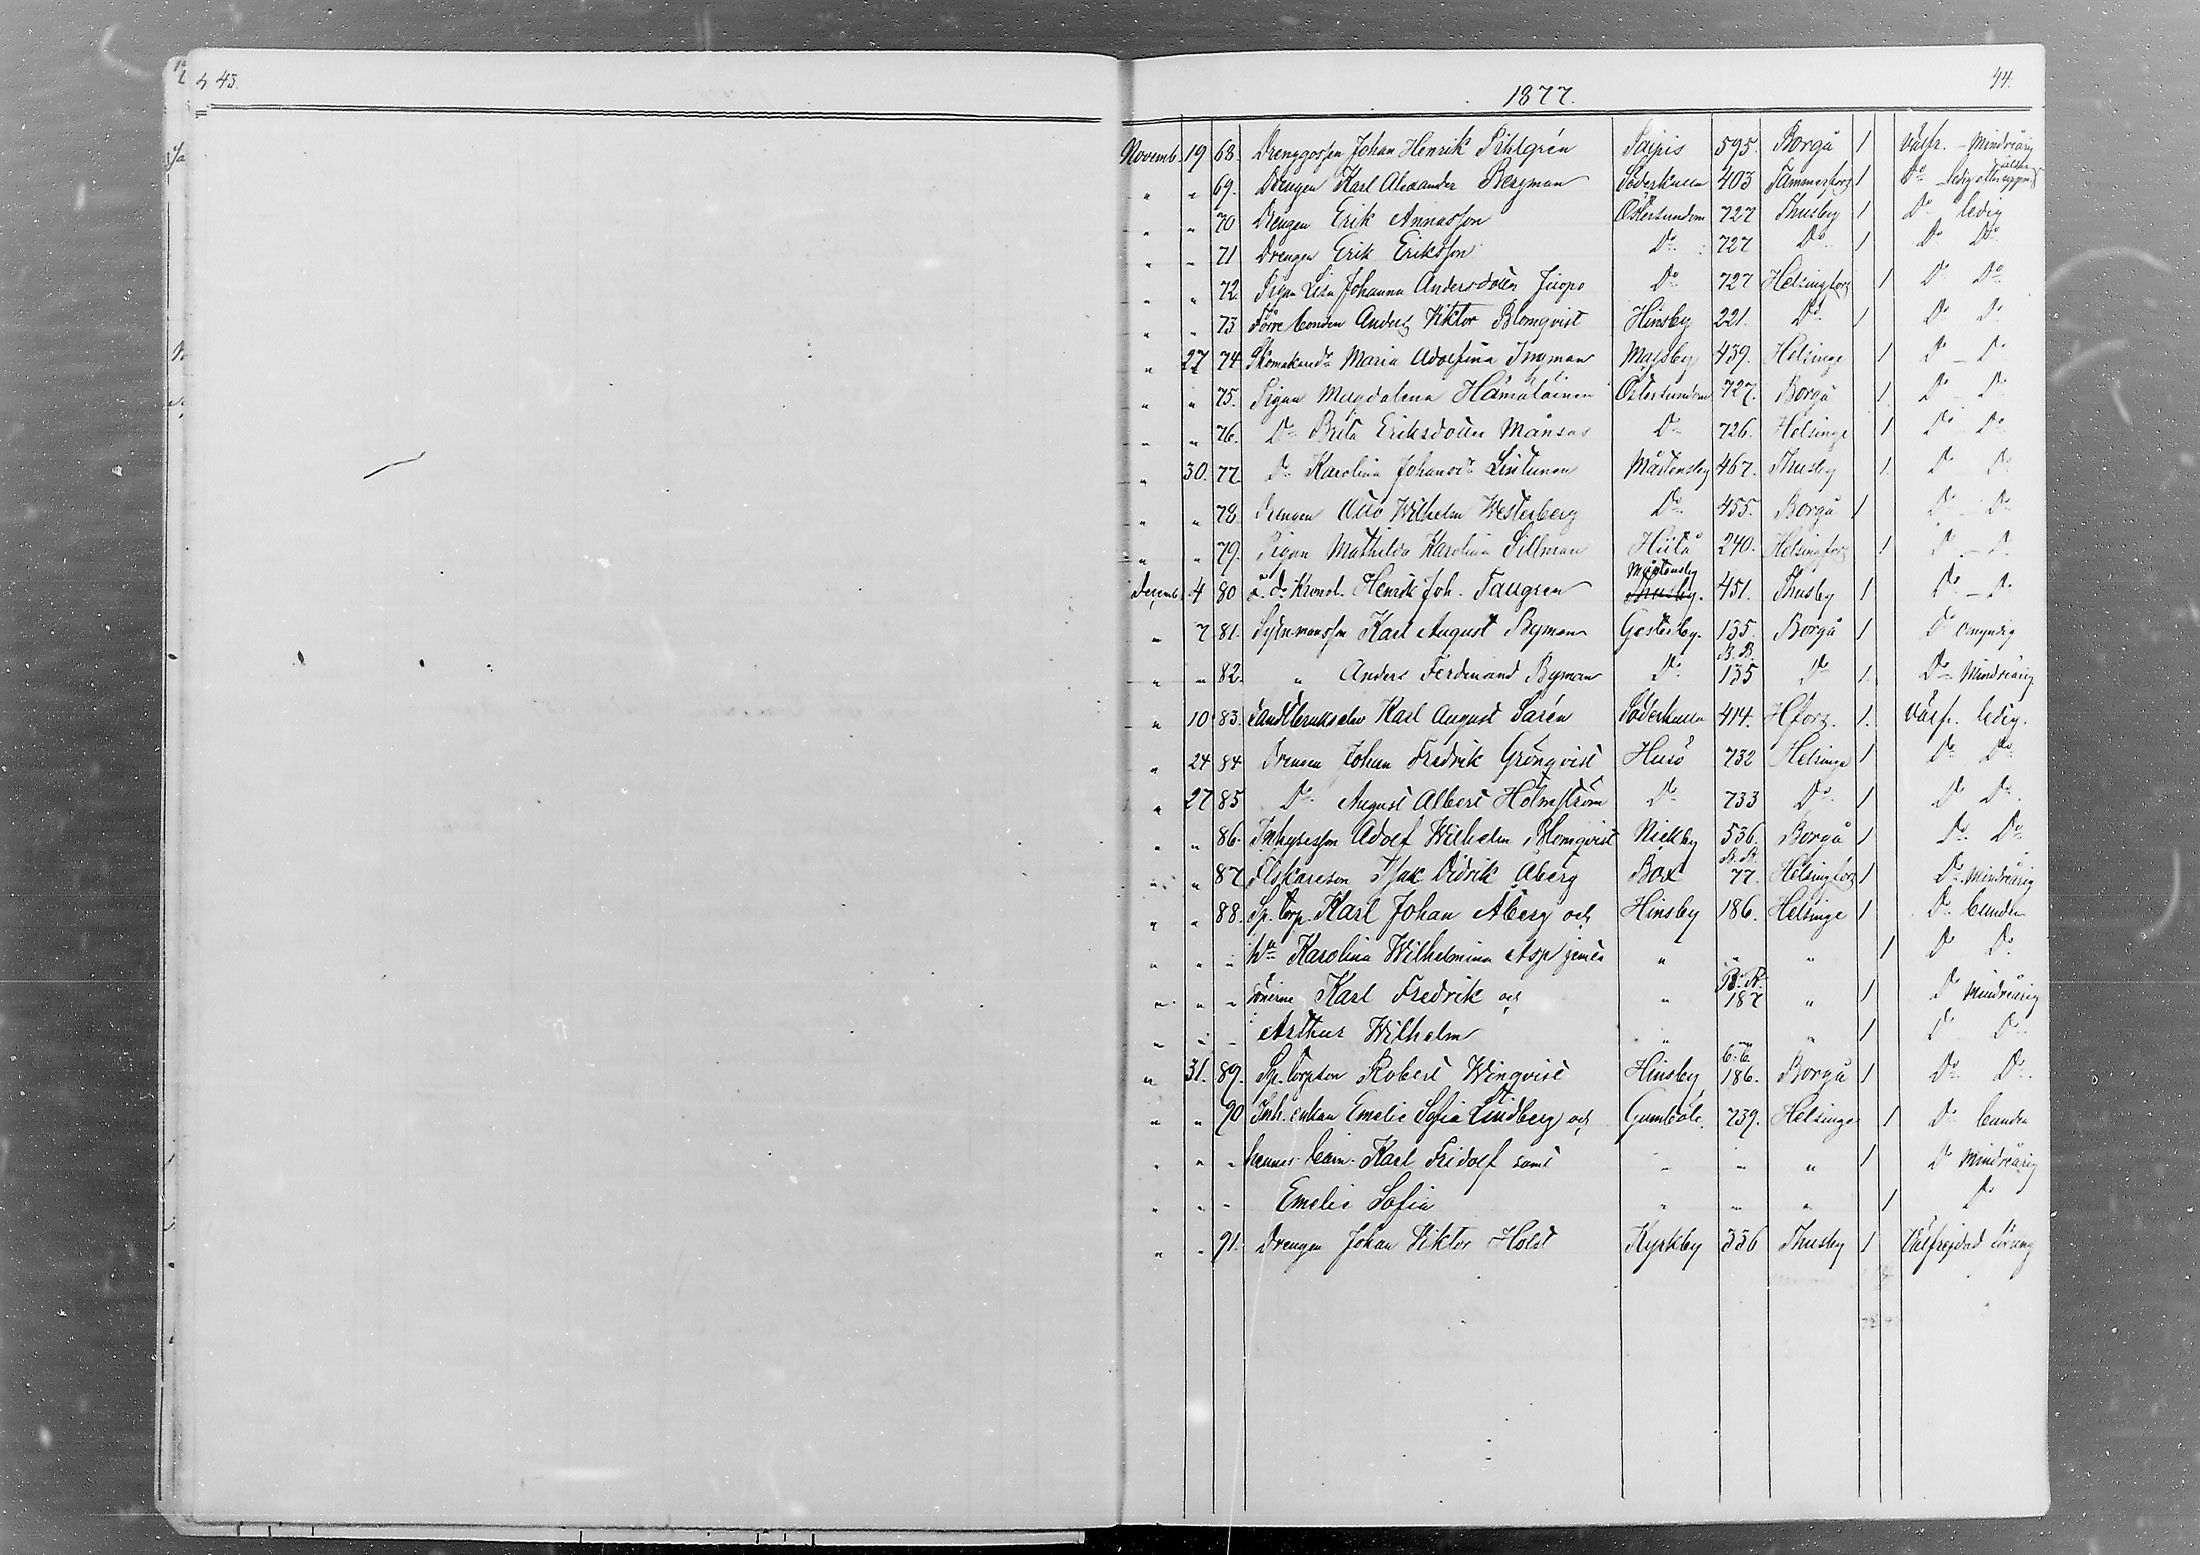 43.
44.
1877.
Novemb. 19 68. Drenggossen Johan Henrik Sihlgrén Paipis 595. Borgå 1 Välfr. - Mindreårig
" " 69. Drengen Karl Alexander Bergman Söderkulla 403 Tammerfors 1 Do ledig
" " 70 Drengen Erik Annasson Östersundom 727 Thusby 1 Do ledig
" " 71 Drengen Erik Eriksson Do 727 Do 1 Do Do
" " 72 Pigan Lisa Johanna Andersdotter Do 727 Helsingfors 1 Do Do
" " 73 Förre bonden Anders Viktor Blomqvist Hinsby 221. Do 1 Do Do
" 27 74 Maria Adolfina Ingman Massby 439. Helsinge 1 Do - Do
" " 75. Pigan Magdalena Hämäläinen Östersundom 727. Borgå 1 Do - Do
" " 76. Do Brita Eriksdotter Månsas Do 726. Helsinge 1 Do - Do
" 30. 77 Do Karolina Johansdr Lintunen Mårtensby 467. Thusby 1. Do Do
" " 78. Drengen Otto Wilhelm Westerberg Do 455. Borgå 1 Do - Do
" " 79. Pigan Mathilda Karolina Sillman Hiitå 240. Helsingfors 1 Do - Do
Mårtensby
Decemb. 4 80 Henrik Joh. Taugren Thusby. 451. Thusby 1 Do - Do
" 7 81. Karl August Byman Gästerby. 135. Borgå 1 Do omyndig
B. B.
" " 82. " Anders Ferdinand Byman Do 135 Do 1. Do Mindreårig
" 10 83. Landtbrukselev Karl August Sarén Söderkulla 414. Hfors. 1. Välfr. ledig.
" 24 84 Drengen Johan Fredrik Grönqvist Husö 732 Helsinge 1 Do Do
" 27 85 Do August Albert Holmström Do 733 Do 1 Do Do
" " 86. Inhysesson Adolf Wilhelm Blomqvist Nickby 536. Borgå 1 Do Do
" " 87. Fiskareson Isak Didrik Åberg Box 77. Helsingfors 1 Do Mindreårig
" " 88. Sp. torp. Karl Johan Åberg och Hinsby 186. Helsinge 1 Do bunden
" " " Karolina Wilhelmina Asp jemte " " " 1 Do Do
" " " sönerne Karl Fredrik och " 187 " 1 Do Mindreårig
" " " Arthur Wilhelm " " " 1 Do Do
" 31. 89. Sp. torpson Robert Winqvist Hinsby 186. Borgå 1 Do Do
" " 90 Inh. enkan Emelie Sofia Lindberg och Gumböle. 739. Helsinge 1 Do bunden
" " " hennes barn Karl Fridolf samt " " " 1 Do Mindreårig
" " " Emelie Sofia " " " 1 Do
" " 91. Drengen Johan Viktor Holst Kyrkby 336 Thusby 1 Välfrejdad